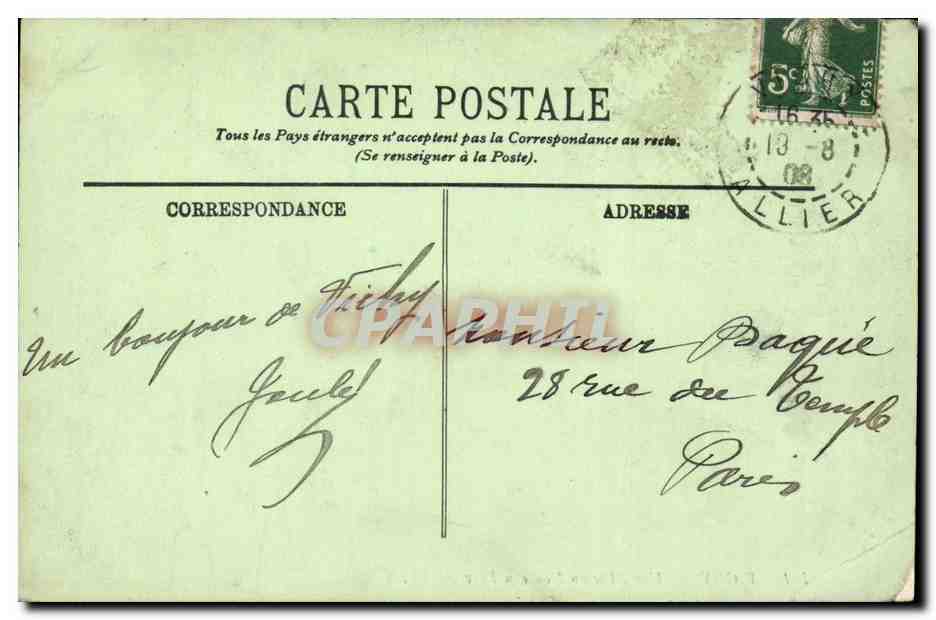 CARTE POSTALE
Tous les Pays étrangers n'acceptent pas la Correspondance au recto.
(Se renseigner à la Poste).
5c
POSTES
16 35
-8
08
ALLIER
CORRESPONDANCE
ADRESSE
Un bonjour de Vichy
CPAPHIL
Monsieur Bagué
28 rue du Temple
Paris